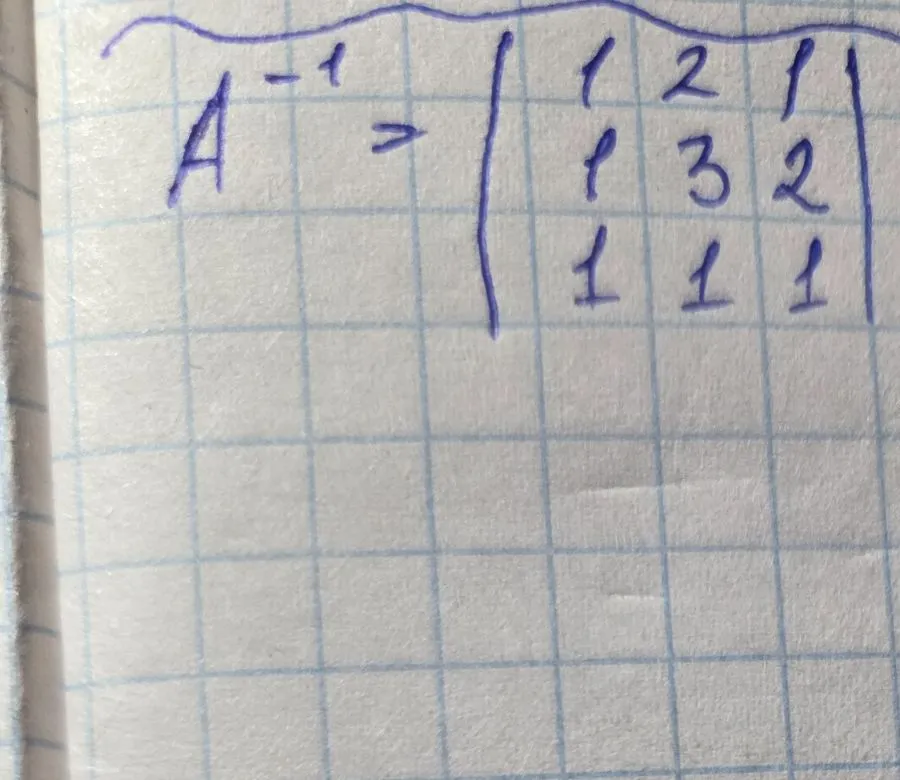 A⁻¹ = | 1 2 1 |
| 1 3 2 |
| 1 1 1 |